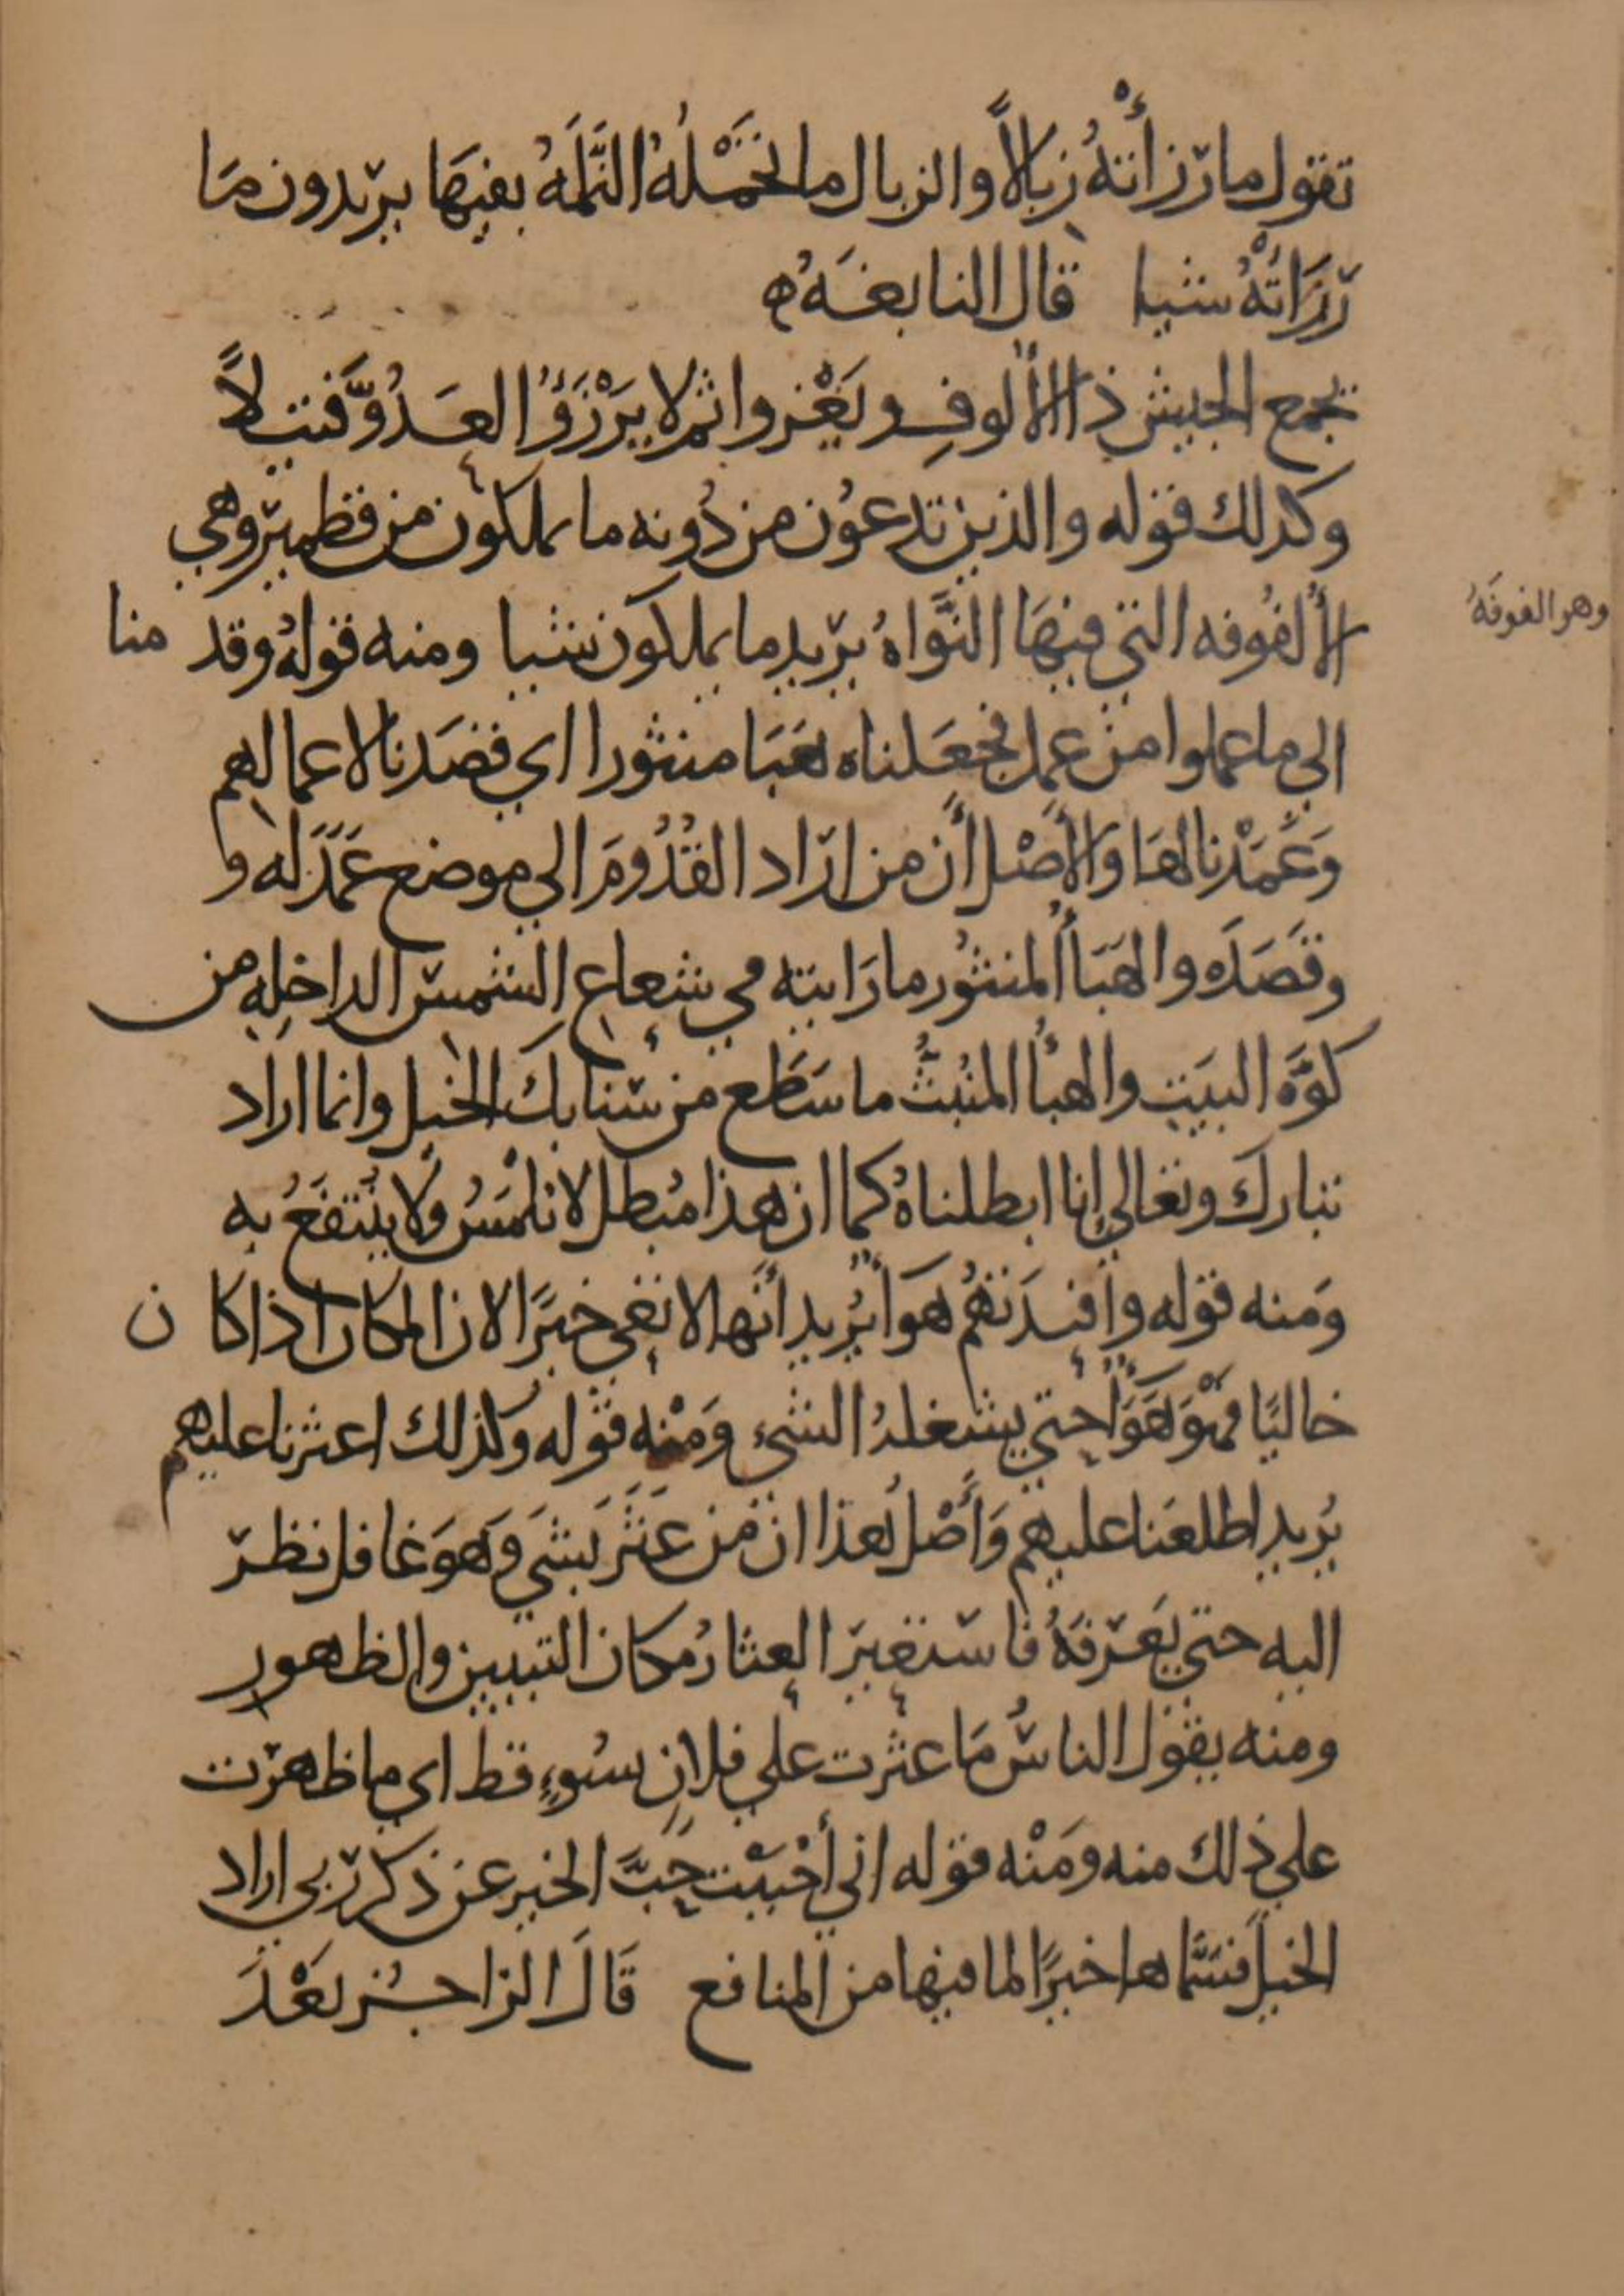 تقول ما رزأتهُ زبالاً والزبال ما تحمْلهُ النَّملَهُ بفيهَا يريدون مَا
رَزَأتهُ شيا قال النابغَهُ ه
تجمع الجيش ذا الألوفِ ويَغْزوا ثم لا يَرْزَؤُ العَدُوَّ فَتيلاً
وكذلك قوله والذين تدعوُن من دُونه ما يملكون من قطمير وهي
الألفُوفه التي فيهَا النَّواهُ يريد ما يملكون شيا ومنه قولهُ وقدمنا
وهو الفوفَهُ
الي ما عملوا من عمل فجعَلناه هَبَا منثورا اي قصَدنا لاعمالهم
وَعَمَدْنا لهَا والأصْل أن من اراد القُدُومَ الي موضع عَمَدَ له و
وقَصَدَه والهَبَأُ المنثُور ما رَايته في شعاع الشمس الداخلِهِ من
كوَّهَ البيَتِ والهبأُ المنُبثُّ ما سَطَع من سَنابك الخيل وانما اراد
تبارك وتعالي انا ابطلناهُ كما ان هذا مُبطل لا يلْمَسُ ولا يُنتفَعُ به
وَمنه قوله وافئدَتهُم هَوَأ يُريد أنَها لا تعَي خيرًا لان المكان اذا كان
خاليًا فهْوَ هَوَأ حتي يشغلهُ الشيء وَمنْه قوله وكذلك اعثرنا عليهم
يُريد اطلعَنا عليهم وَأَصْلُ هَذا ان من عَثَرَ بشَي وَهوَ غافل نظر
اليه حتي يَعرفهُ فاستعيرَ العثارُ مكان التبيين والظهور
ومنه يقول الناسُ مَا عثرت علي فلانٍ بسُوءٍ قط اي ما ظهرت
علي ذلك منه ومَنْه قوله اني أحْبَبْت حُبَّ الخير عن ذكر ربي اراد
الخيلَ فسَمَّاها خيرًا لما فيها من المنافع قَالَ الراجُز بَعْدَ